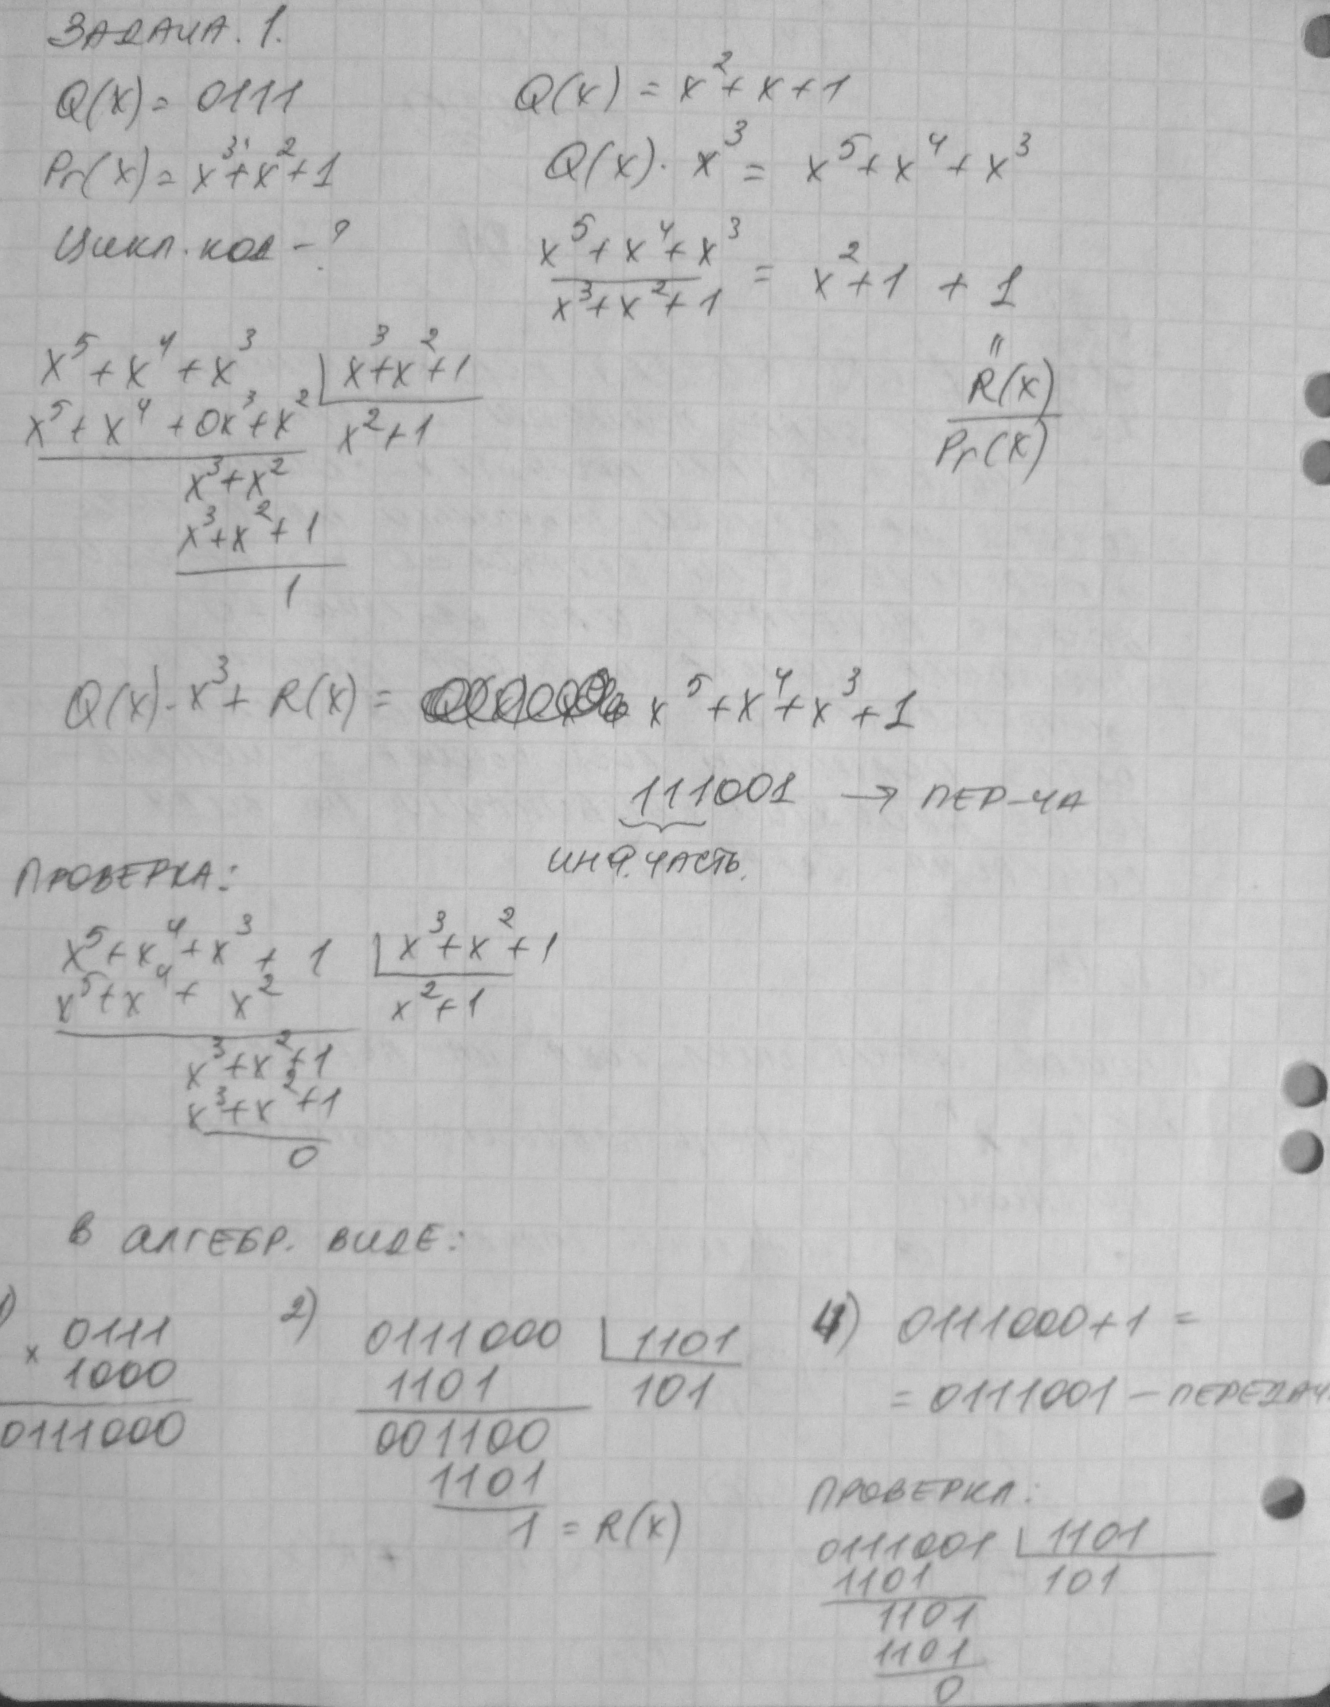 ЗАДАЧА. 1.
Q(x) = 0111
Pr(x) = x³+x²+1
Цикл. код - ?
Q(x) = x²+x+1
Q(x)·x³ = x⁵+x⁴+x³
x⁵+x⁴+x³
x³+x²+1
= x²+1 + 1
"
R(x)
Pr(x)
x⁵+x⁴+x³ | x³+x²+1
x⁵+x⁴+0x³+x² x²+1
x³+x²
x³+x²+1
1
Q(x)·x³+ R(x) = x⁵+x⁴+x³+1
111001 → ПЕР-ЧА
ИНФ. ЧАСТЬ.
ПРОВЕРКА:
x⁵+x⁴+x³+ 1 | x³+x²+1
x⁵+x⁴+ x² x²+1
x³+x²+1
x³+x²+1
0
В АЛГЕБР. ВИДЕ:
1)
0111
× 1000
0111000
2)
0111000 | 1101
1101 101
001100
1101
1 = R(x)
4) 0111000+1 =
= 0111001 – ПЕРЕДАЧ
ПРОВЕРКА:
0111001 | 1101
1101 101
1101
1101
0